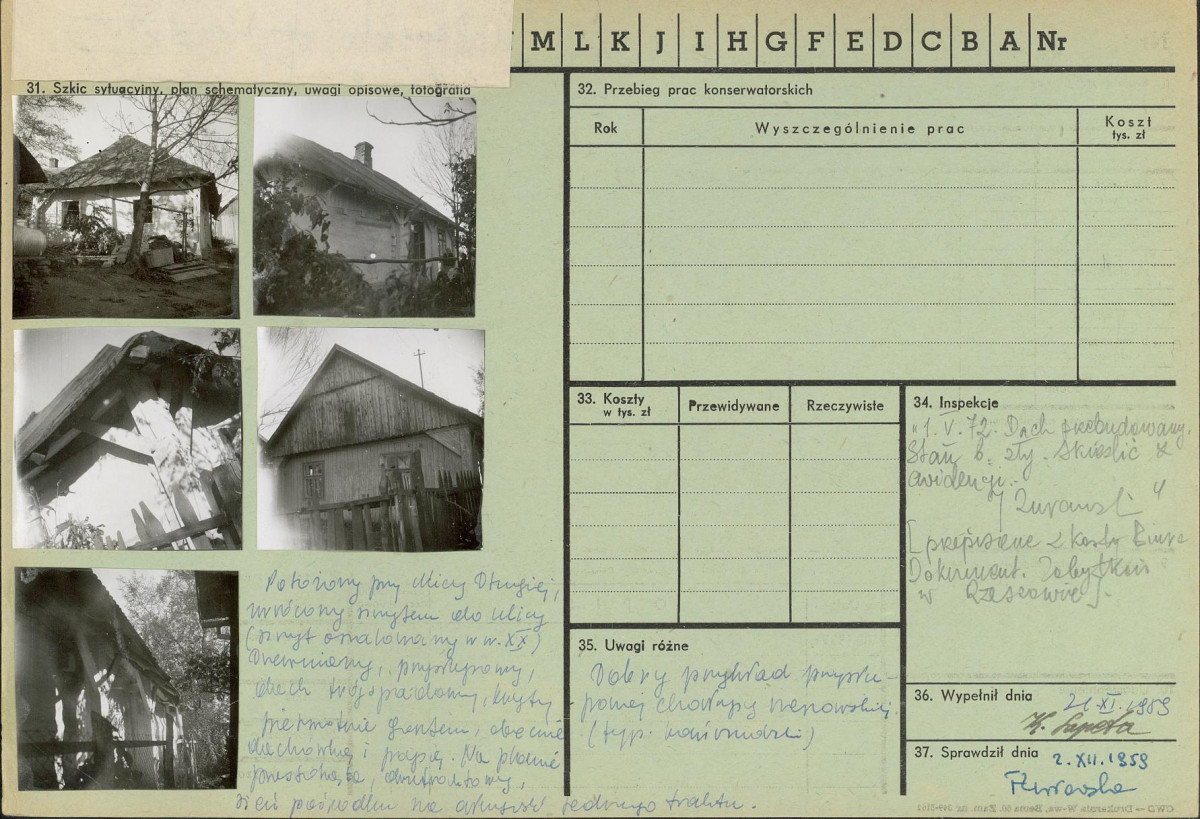 M L K J I H G F E D C B A Nr
31. Szkic sytuacyjny, plan schematyczny, uwagi opisowe, fotografia
Położony przy ulicy Długiej,
zwrócony szczytem do ulicy
(szczyt oszalowany w w. XX)
Drewniany, przysłupowy,
dach trójspadowy, kryty
pierwotnie gontem, obecnie
dachówką i papą. Na planie
prostokąta, dwutraktowy,
sień pośrodku na długość jednego traktu.
32. Przebieg prac konserwatorskich
Rok
Wyszczególnienie prac
Koszt
tys. zł
33. Koszty
w tys. zł
Przewidywane
Rzeczywiste
34. Inspekcje
"1. V. 72. Dach przebudowany.
Stan b. zły. Skreślić z
ewidencji.
"
[przepisane z karty Biura
Dokument. Zabytków
w Rzeszowie].
35. Uwagi różne
Dobry przykład przysłu-
powej chałupy
(typ.
36. Wypełnił dnia
21.XI.1959
37. Sprawdził dnia
2.XII.1959